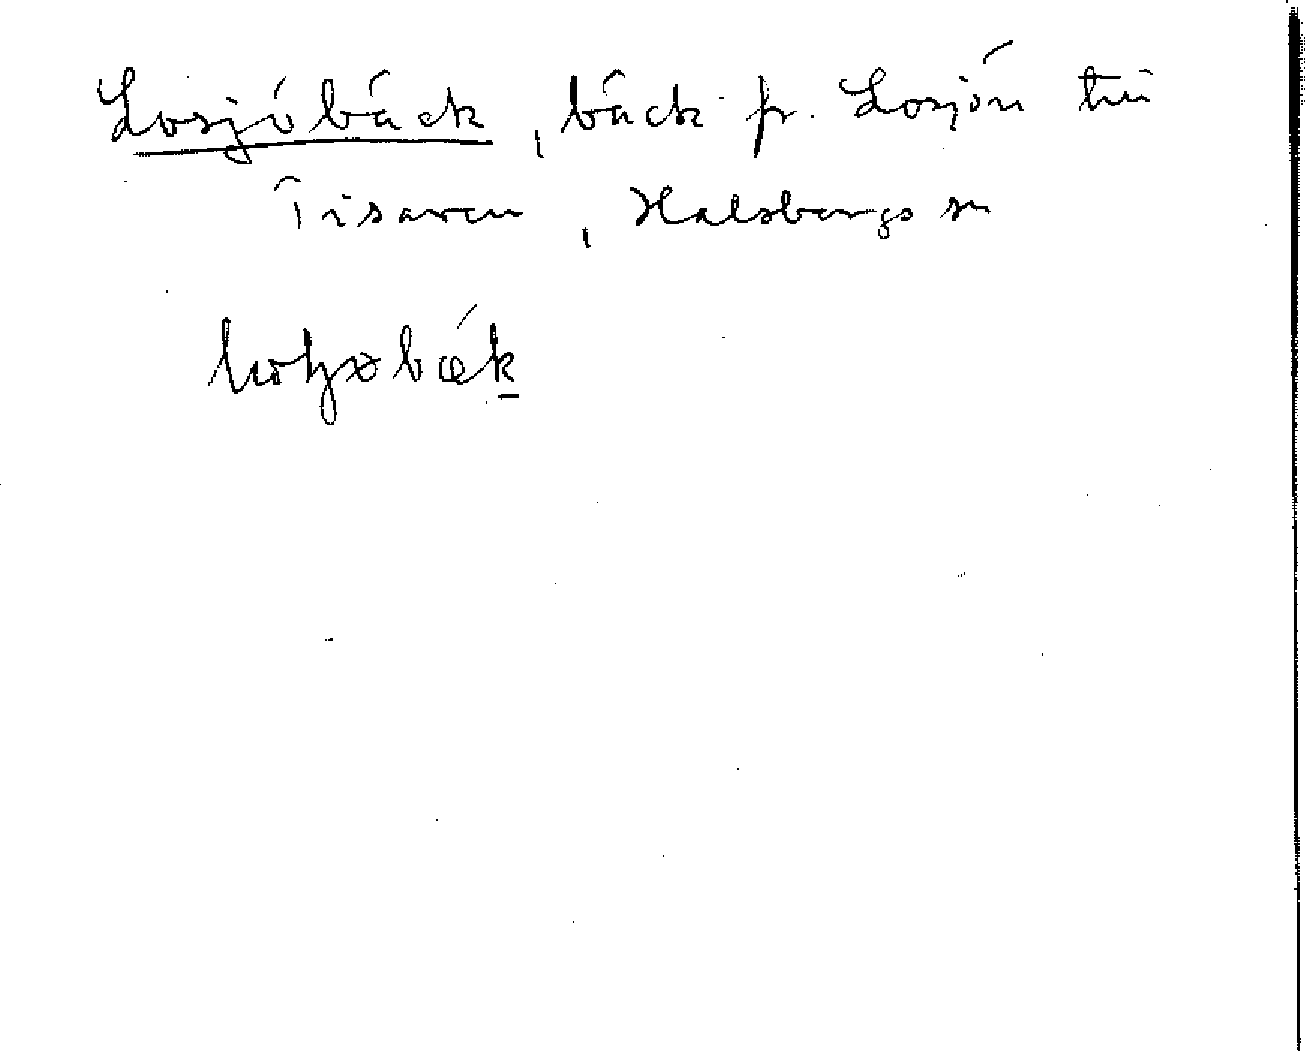 Losjöbäck, bäck fr. Losjön till
Tisaren, Hallsbergs sn